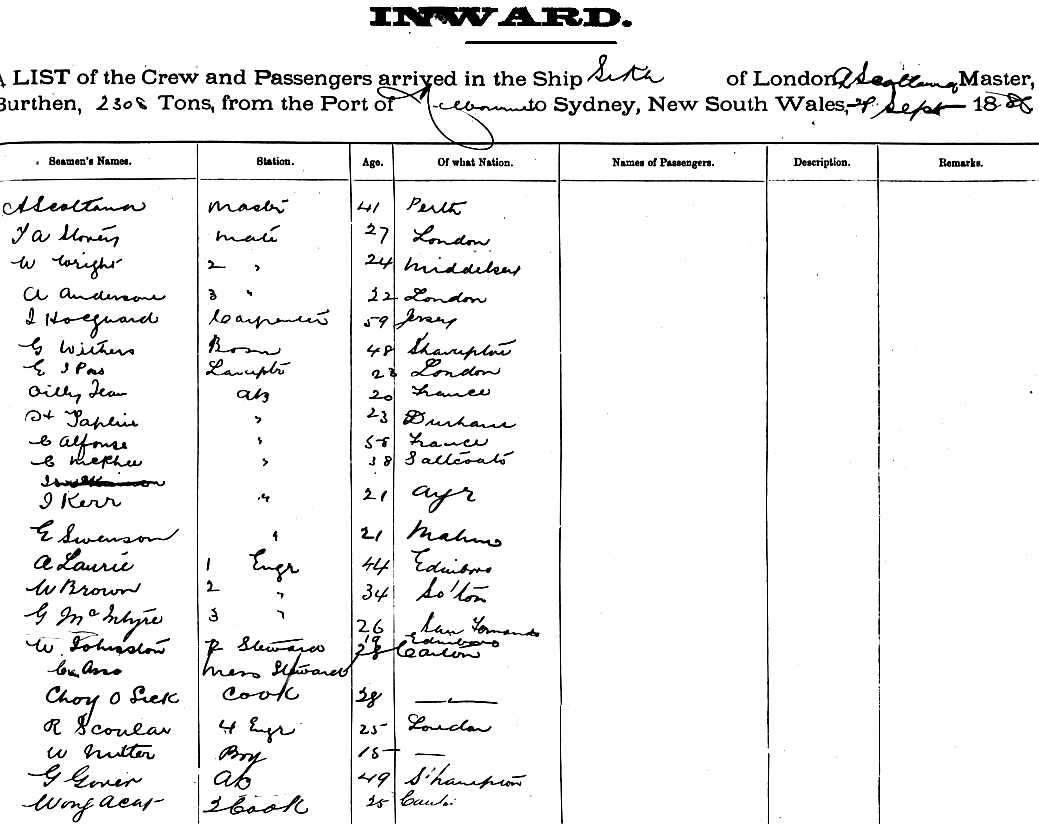 INWARD.
A LIST of the Crew and Passengers arrived in the Ship of London, Master,
Burthen, 2308 Tons, from the Port of to Sydney, New South Wales, Sept 1886
Seamen's Names. Station. Age. Of what Nation. Names of Passengers. Description. Remarks.
Master 41 Perth
mate 27 London
W Wright 2 " 24 Middelsex
A Anderson 3 " 22 London
Carpenter 59 Jersey
G Withers Bosn 48 Shampton
E 23 London
Jean AB 20 France
" 23 Durham
C Alfonse " France
C McPhee " 38 Saltcoats
J Kerr " 21 Ayr
E Swenson " 21
A Laurie 1 Engr 44 Edinboro
W Brown 2 " 34 So'ton
G McIntyre 3 " 26 San Fernando
W Johnston P Steward 19 Edinboro
Mess Steward 28 Canton
Choy O Sick Cook 28 —"—
R Scoular 4 Engr 25 London
W Nutter Boy 15 —
G Gover AB 49 S'hampton
Wong Acat 2 Cook 25